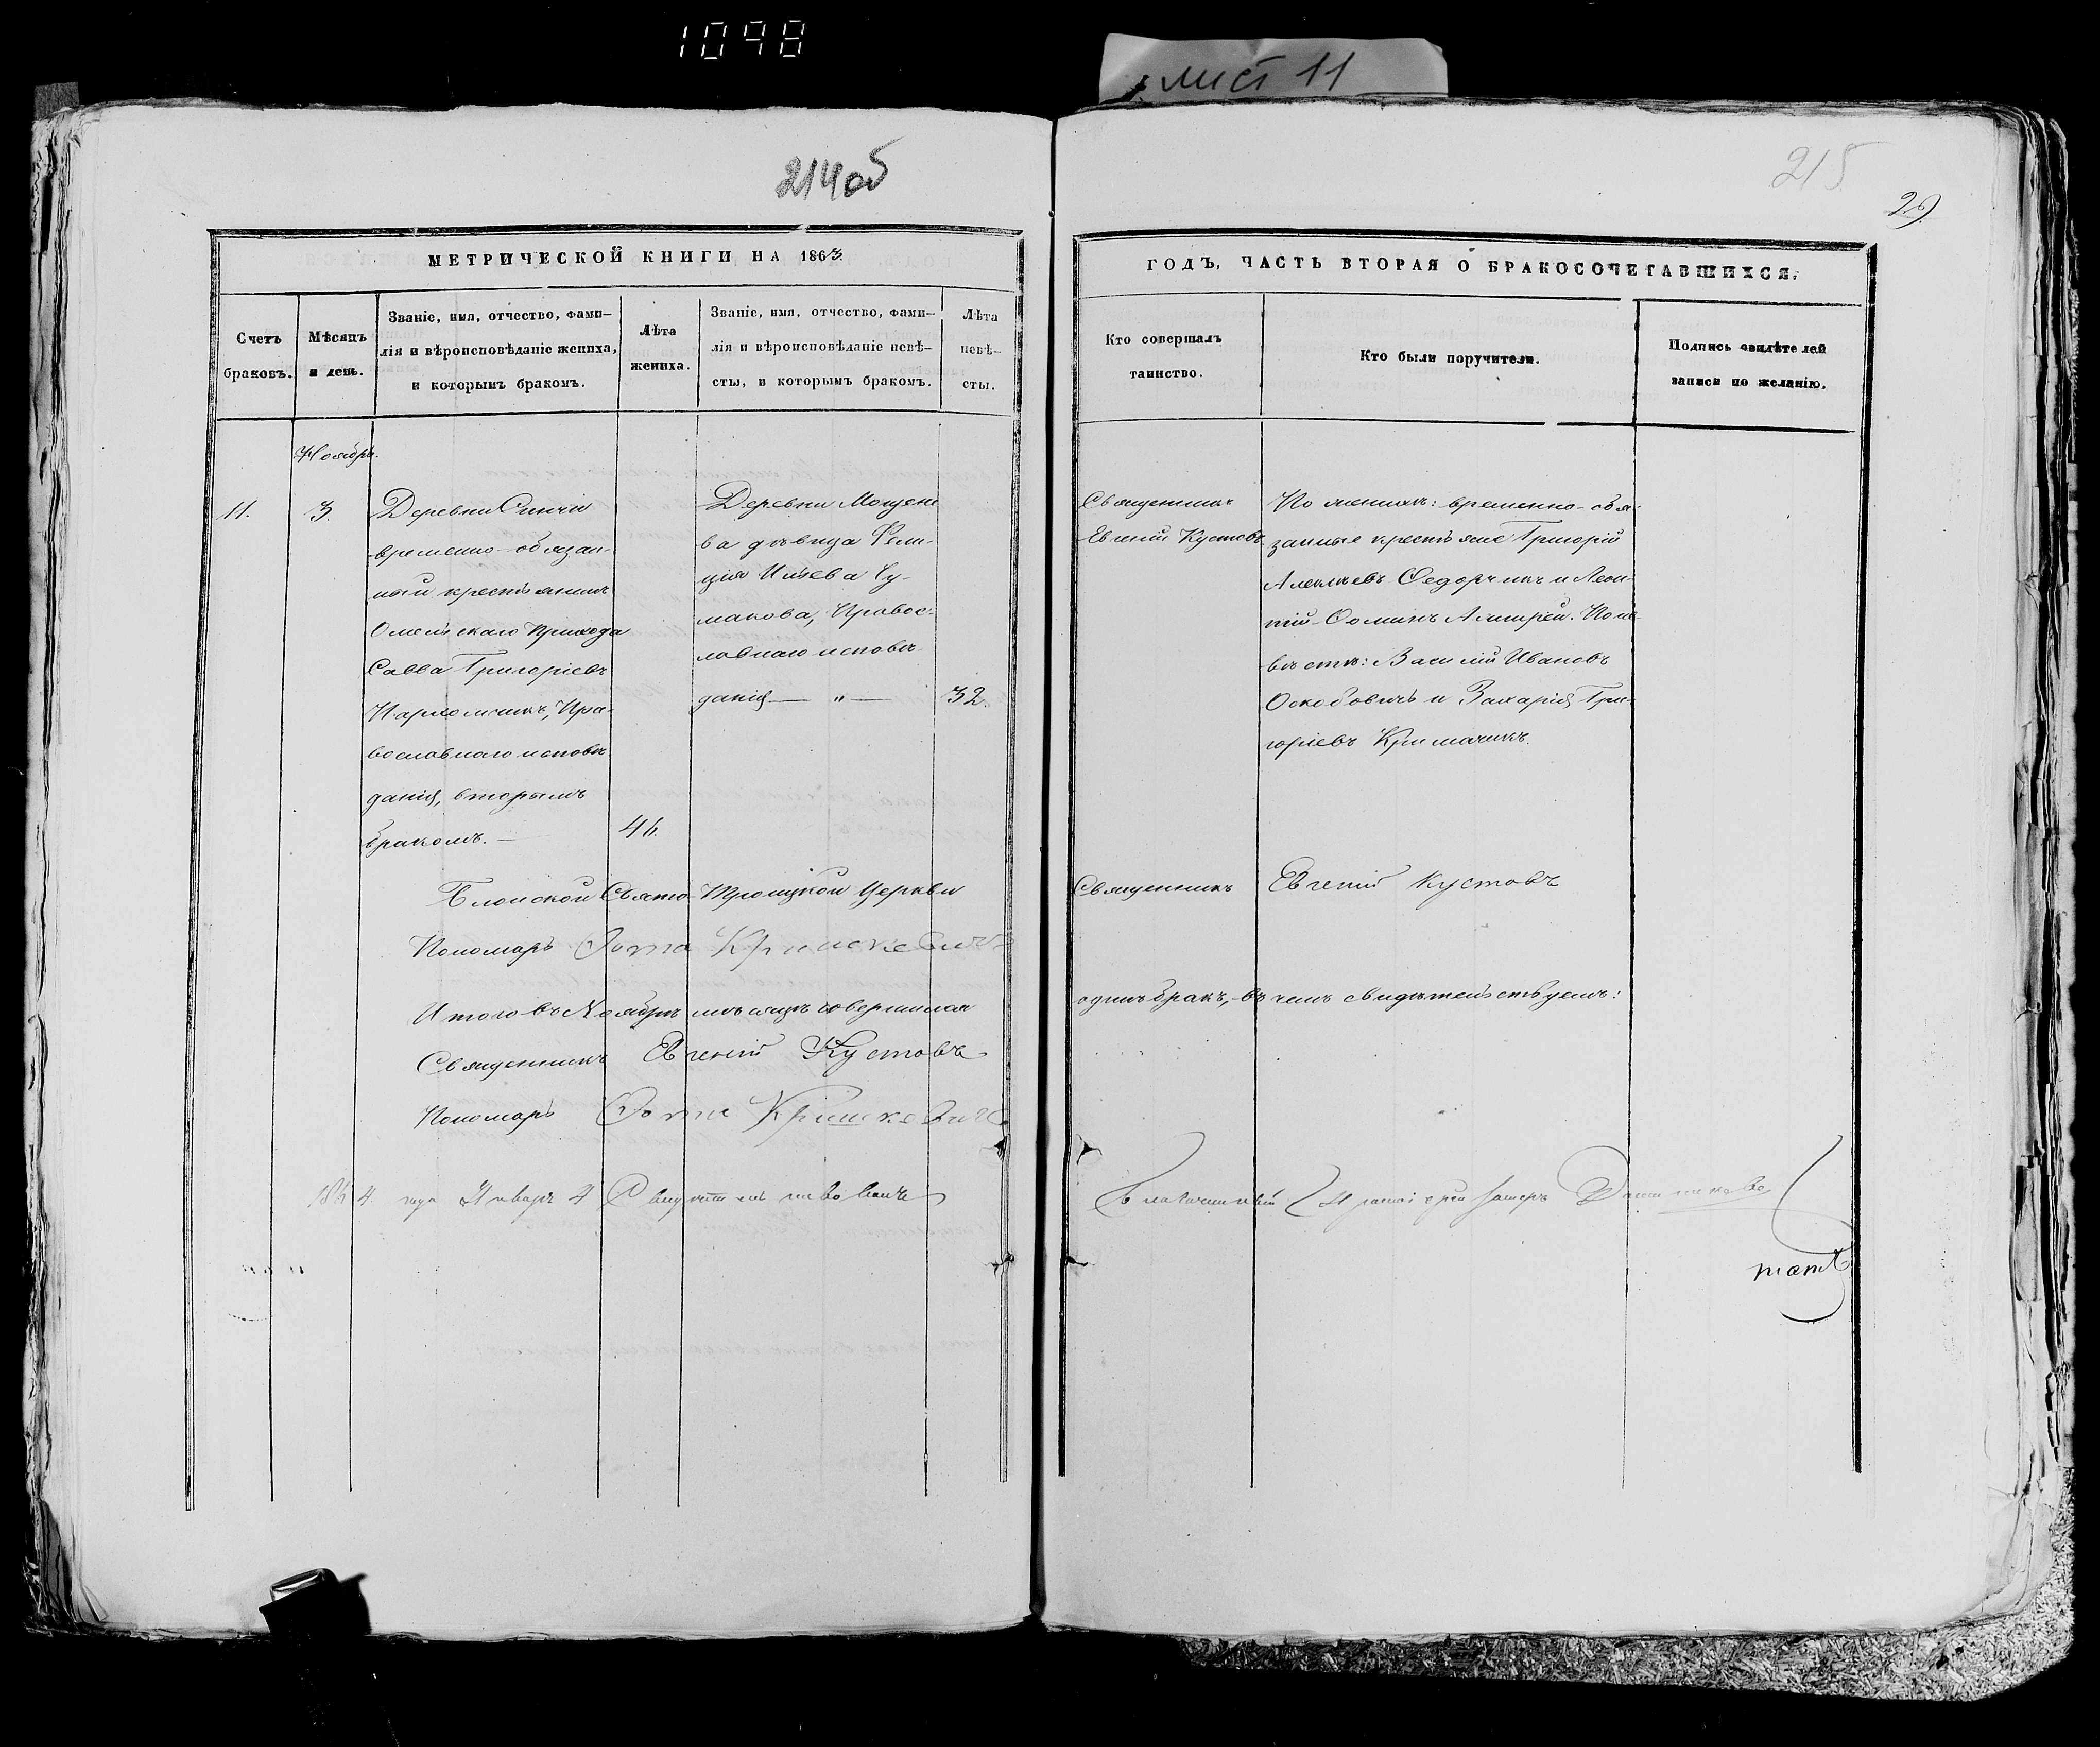 1098
лист 11
214об
215
29
МЕТРИЧЕСКОЙ КНИГИ НА 1863
ГОДЪ, ЧАСТЬ ВТОРАЯ О БРАКОСОЧЕТАВШИХСЯ.
Счетъ
браковъ.
Мѣсяцъ
и день.
Званіе, имя, отчество, фами-
лія и вѣроисповѣданіе жениха,
и которымъ бракомъ.
Лѣта
жениха.
Званіе, имя, отчество, фами-
лія и вѣроисповѣданіе невѣ-
сты, и которымъ бракомъ.
Лѣта
невѣ-
сты.
Кто совершалъ
таинство.
Кто были поручители.
Подпись свидѣтелей
записи по желанію.
Ноябрь.
11.
3.
Деревни Синчи
временно-обязан-
ный крестьянинъ
Омельскаго Прихода
Савва Григоріевъ
Пра-
вославнаго исповѣ-
данія, вторымъ
бракомъ.—
Деревни
ва дѣвица Фели-
ція Ильева Чу-
макова, Правос-
лавнаго исповѣ-
данія — " —
32.
Священникъ
Евгеній Кустовъ.
По женихѣ: временно-обя-
занные крестьяне Григорій
Алексѣевъ Федорчикъ и Леон-
тій Ѳоминъ По не-
вѣстѣ: Василій Ивановъ
и Захарій Гри-
горіевъ
Свято-Троицкой Церкви
Священникъ Евгеній Кустовъ
Пономарь Ѳома Кришкевичъ
Итого въ Ноябрѣ мѣсяцѣ совершился
одинъ бракъ,-въ чемъ свидѣтельствуемъ:
Священникъ Евгеній Кустовъ
Пономарь Ѳома Кришкевичъ
1864 года Январь 4 Свидѣтельствовалъ
Благочинный Протоіерей